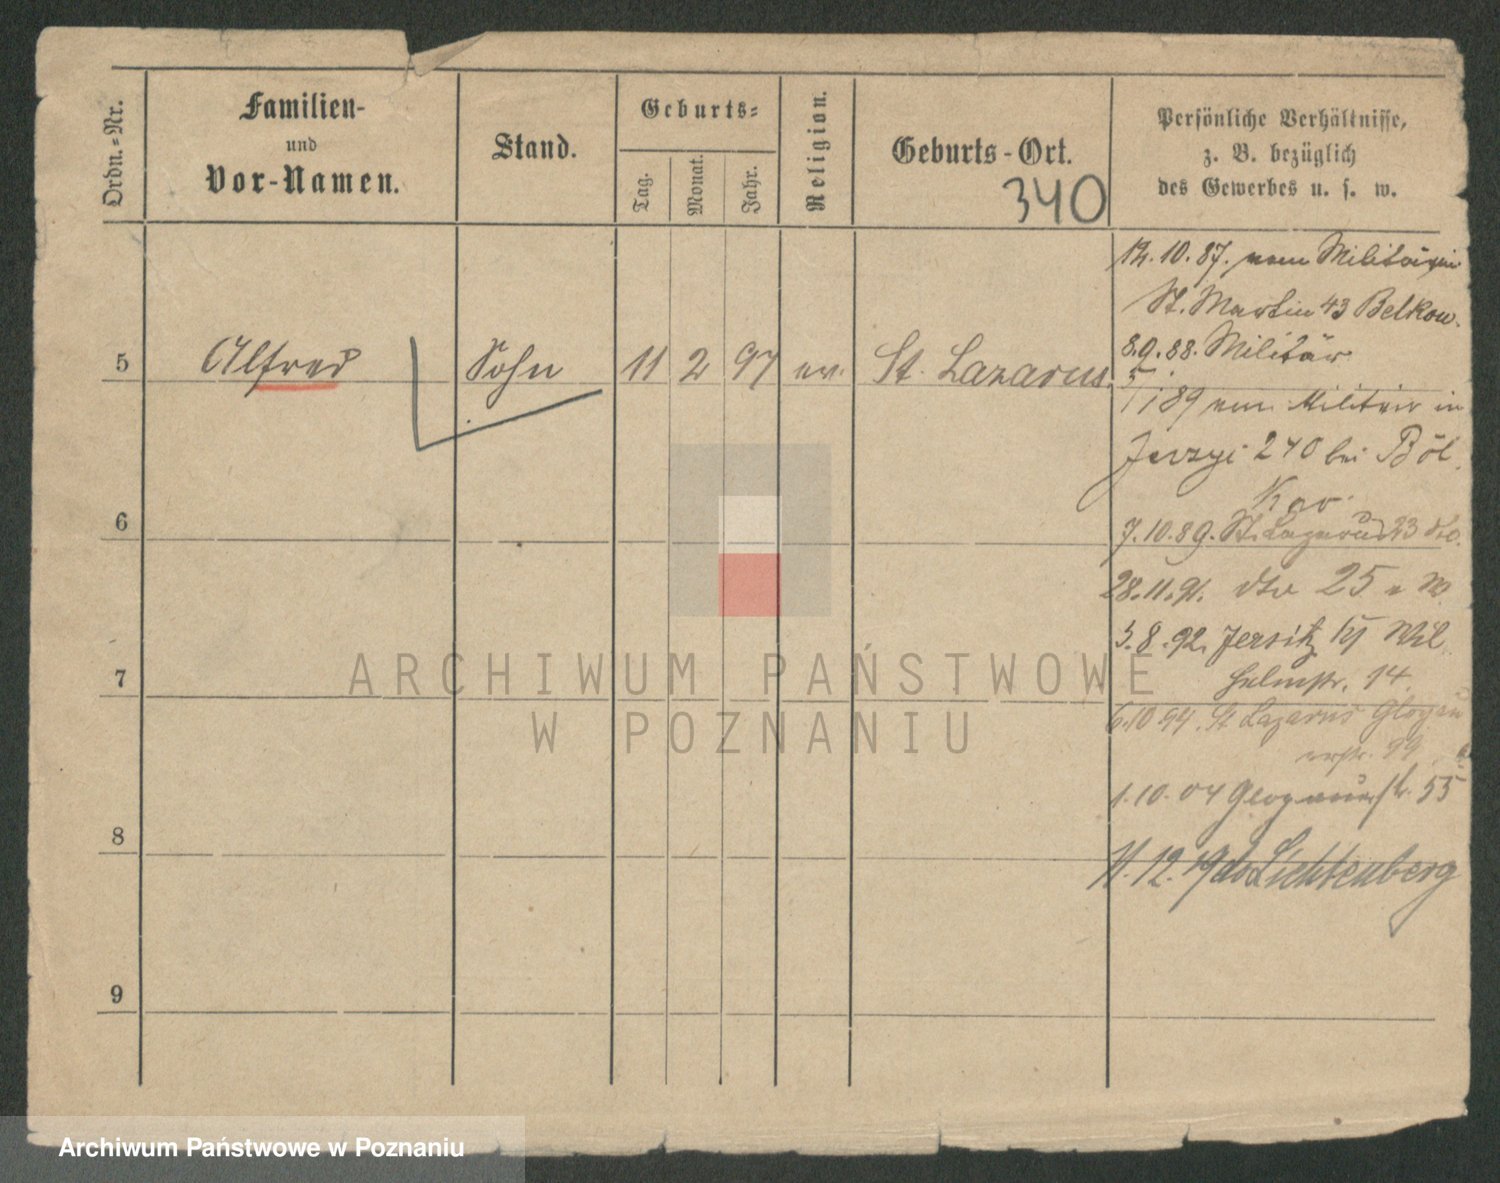 Ordn.-Nr.
Familien-
und
Vor-Namen.
Stand.
Geburts-
Tag.
Monat.
Jahr.
Religion.
Geburts-Ort.
340
Persönliche Verhältnisse,
z. B. bezüglich
des Gewerbes u. s. w.
12.10.87. vom Militär in
St. Martin 43 Belkow.
8.9.88. Militär
5 Alfred Sohn 11 2 97 ev. St. Lazarus
89 vom Militär in
Jerzyi 240 bei Böl
6
7.10.89. St. Lazarus 23
28.11.91. dto 25
3.8.92. Jersitz Wil
helmstr. 14.
7
6.10.94. St Lazarus Glogau
erstr. 99
1.10.04 Glogauerstr. 55
8
11.12.19 do Lichtenberg
9
ARCHIWUM PAŃSTWOWE
W POZNANIU
Archiwum Państwowe w Poznaniu